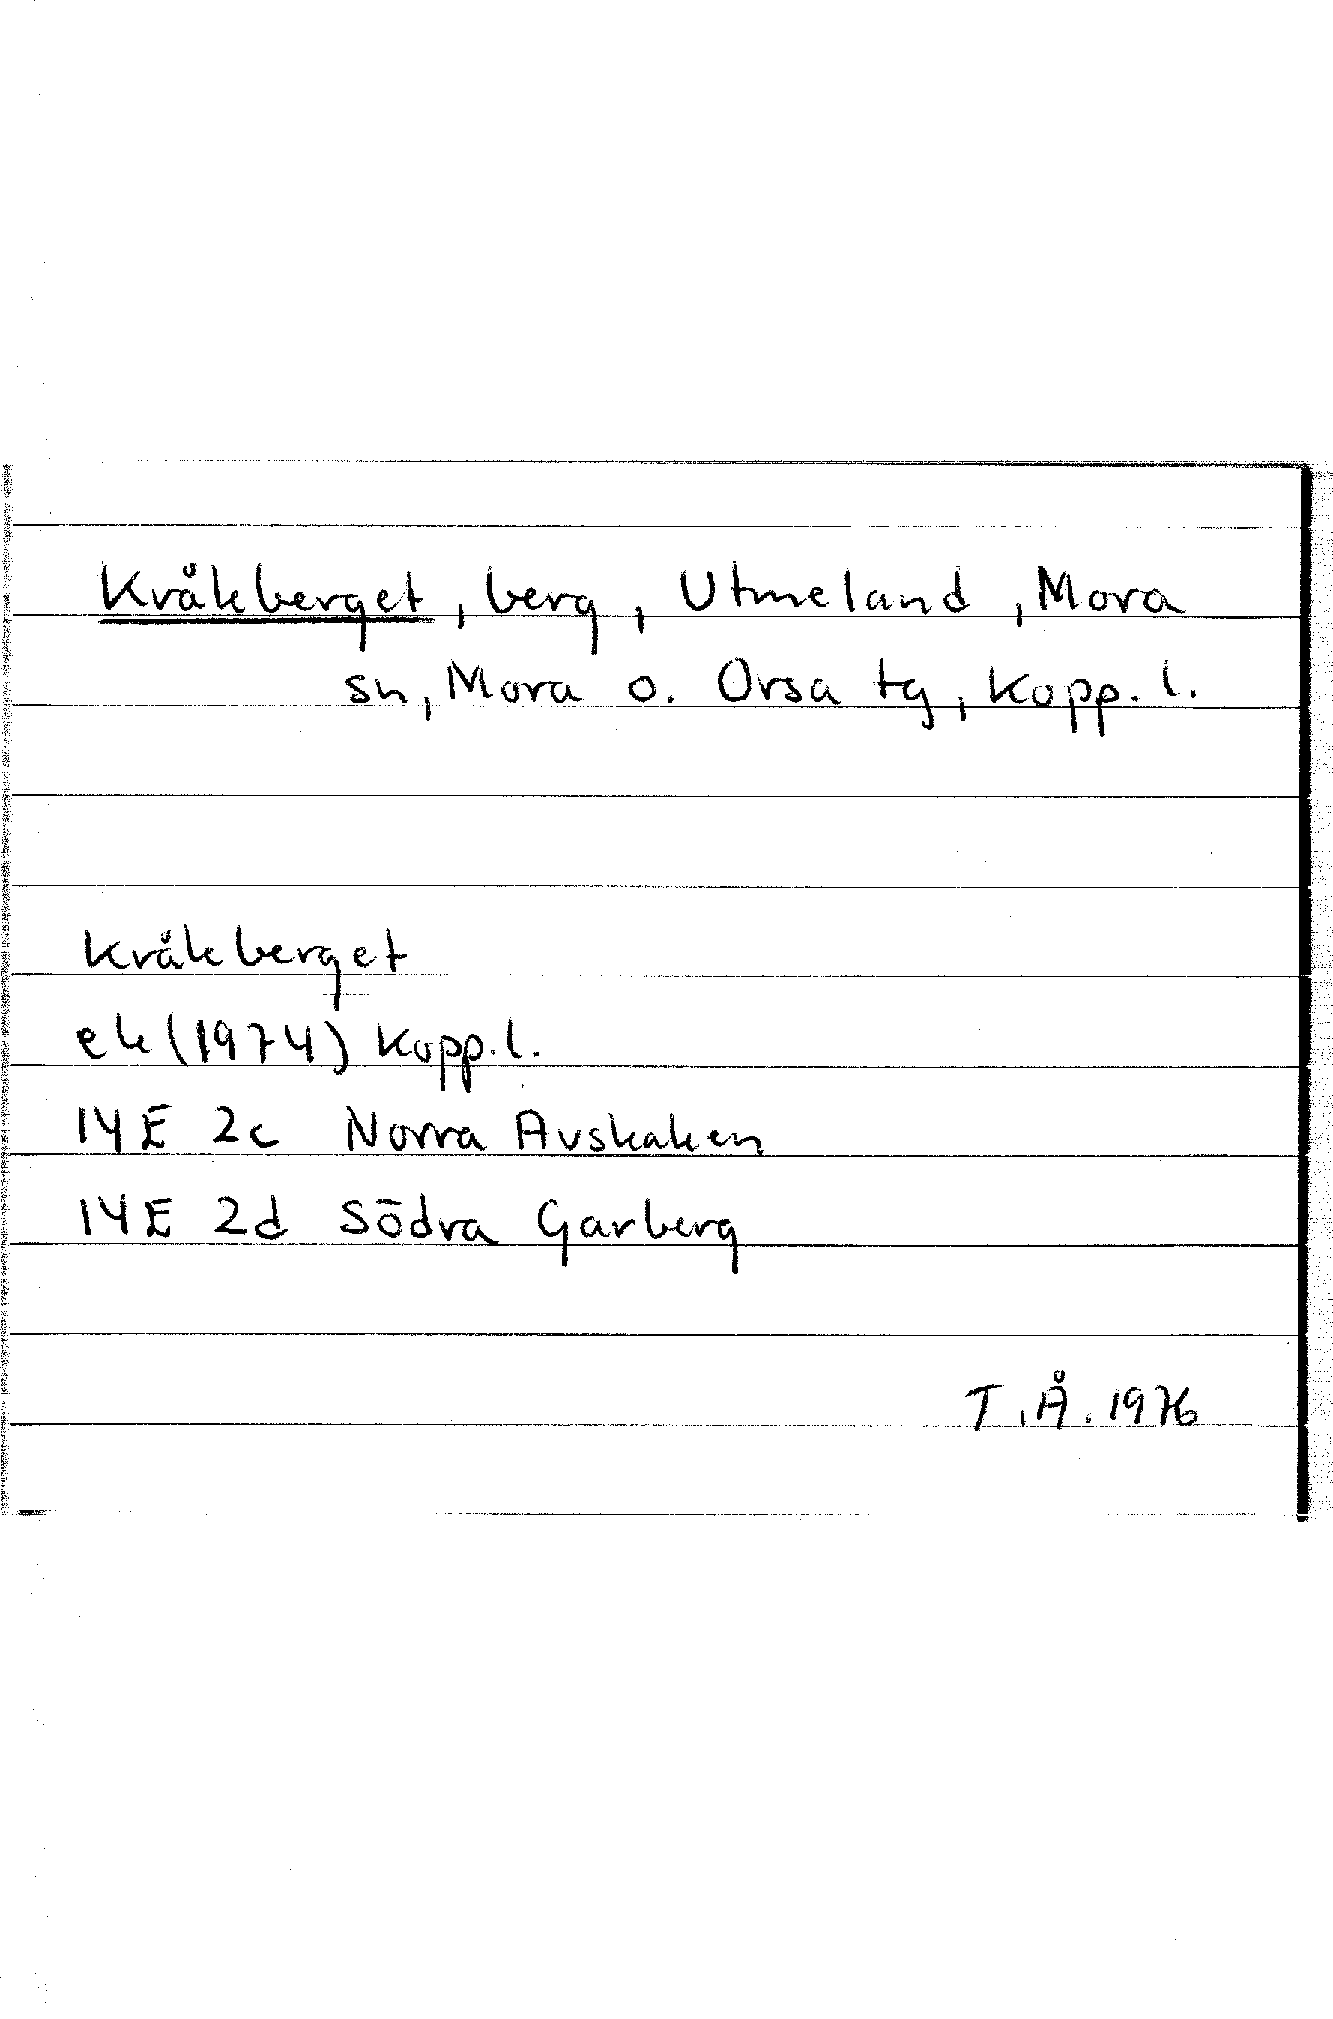 Kråkberget, berg, Utmeland, Mora
sn, Mora o. Orsa tg, Kopp. l.
Kråkberget
ek (1974) Kopp. l.
14E 2c Norra Avskaken
14E 2d Södra Garberg
T.Å. 1976